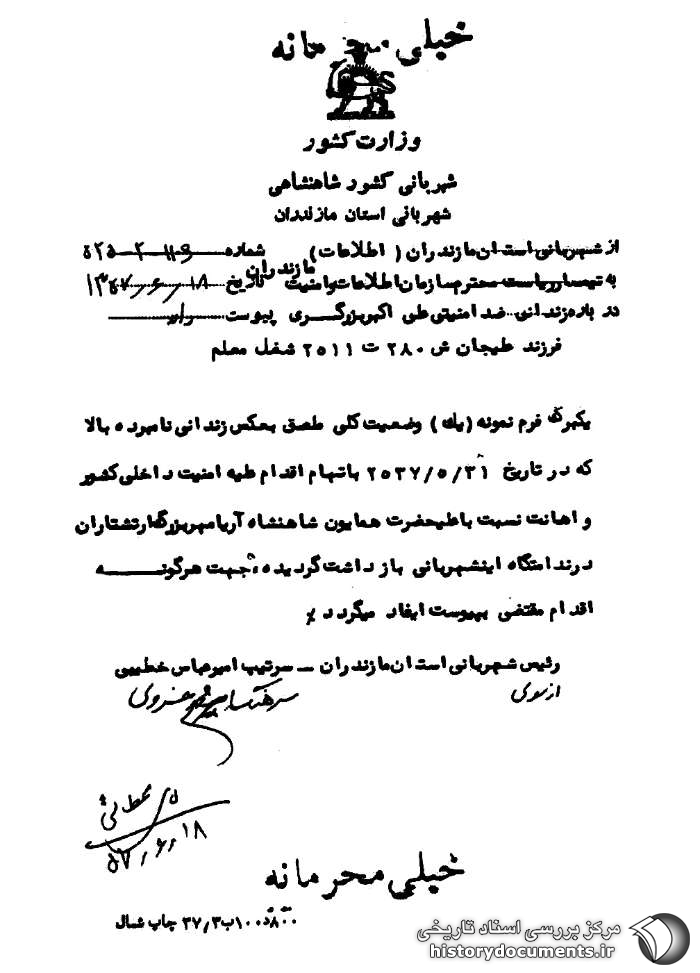 خیلی محرمانه
وزارت کشور
شهربانی کشور شاهنشاهی
شهربانی استان مازندران
از شهربانی استان مازندران ( اطلاعات ) شماره
به تیمسار ریاست محترم سازمان اطلاعات و امنیت مازندران تاریخ ۱۸/۶/۱۳۵۷
در باره زندانی ضد امنیتی علی اکبر بزرگری پیوست دارد
فرزند علیجان ش ۲۸۰ ت ۲۵۱۱ شغل معلم
یکبرگ فرم نمونه (یک) وضعیت کلی ملصق بعکس زندانی نامبرده بالا
که در تاریخ ۲۵۳۷/۵/۳۱ باتهام اقدام علیه امنیت داخلی کشور
و اهانت نسبت باعلیحضرت همایون شاهنشاه آریامهر بزرگ ارتشتاران
در ندامتگاه اینشهربانی بازداشت گردیده، جهت هرگونه
اقدام مقتضی بپیوست ایفاد میگردد
رئیس شهربانی استان مازندران – سرتیپ امیرعباس خطیبی
از سوی سرهنگ
۱۸/۶/۵۷
خیلی محرمانه
۳۷/۳ چاپ شمال
مرکز بررسی اسناد تاریخی
historydocuments.ir